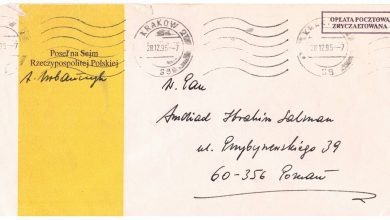 OPŁATA POCZTOWA
ZRYCZAŁTOWANA
KRAKÓW 2
28.12.95.-7
KRAKÓW 2
28.12.95.-7
Poseł na Sejm
Rzeczypospolitej Polskiej
W. Pan
Ibrahim Salman
ul. 39
60-356 Poznań